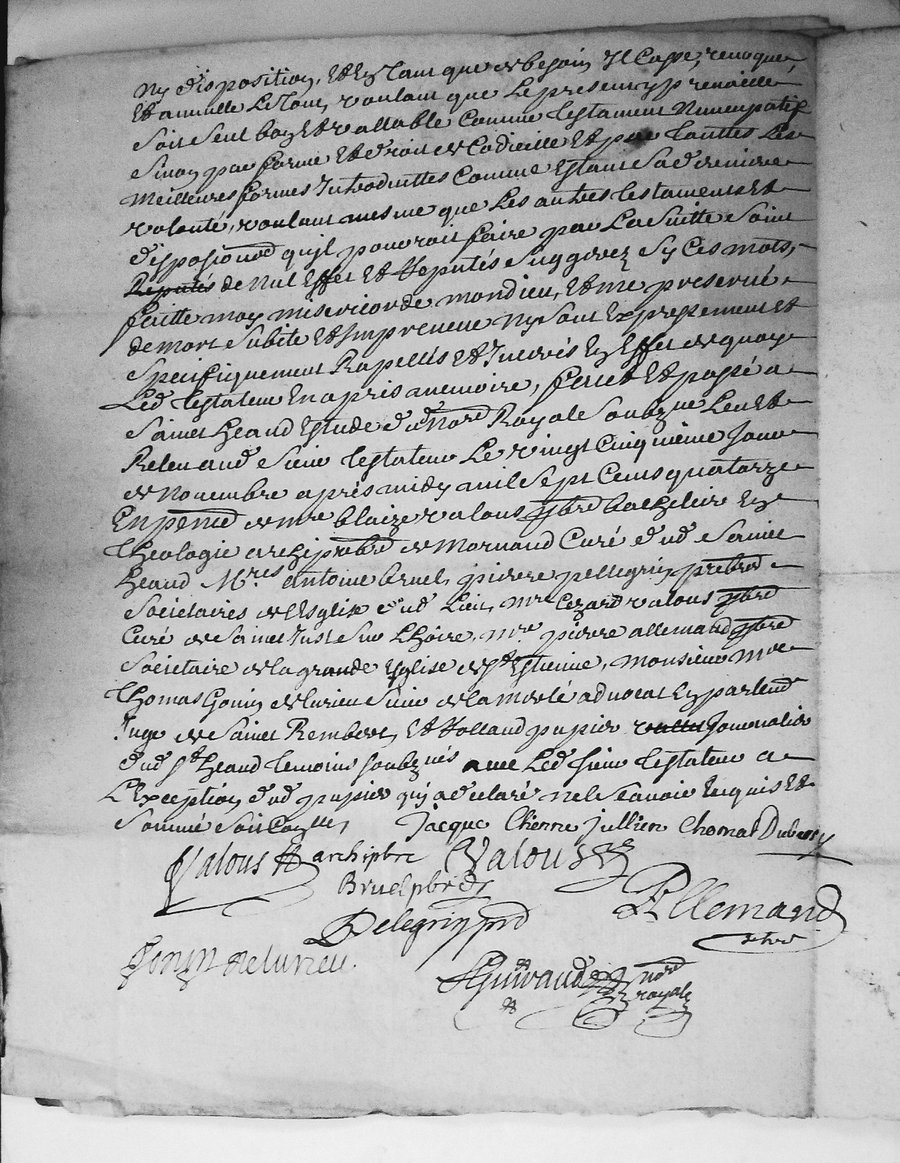 Ny disposition, Et En tant que de besoin Il Casse, revoque,
Et annulle Le tout, voulant que Le present
Soit Seul bon Et vallable Comme testament Nuncupatif
Sinon par forme Et droit de Codicille Et par touttes Les
Meilleures formes Introduittes Comme Estant Sa derniere
volonté, voulant mesme que Les autres testaments Et
disposions quil pourroit faire par La Suitte Soint
Reputés de Nul Effet Et Reputés Suggerez Sy Ces mots,
faitte moy misericorde mon dieu, Et me preservé
de mort Subite Et Impreveue Ny Sont Expressement Et
Specifiquement Rapellés Et Inserés En Effet de quoy
Led testateur En a pris memoire, fait Et passé a
Sainct heand Estude du Nore Royal Soubzne Leu Et
Releu aud Sieur testateur Le vingt Cinquième Jour
de Novembre après midy mil Sept Cens quatorze
En pence de mre blaize valous ptbre bachelier En
theologie archiprebre de Mornand Curé dud Sainct
heand Mres antoine bruel, pierre pellegrin, prebres
Societaires de L'Esglise dud Lieu, mre Cezard valous ptbre
Curé de Sainct Just Sur Lhoire, mre pierre allemand ptbre
Societaire de la grande Esglise de St Estienne, monsieur mre
thomas Gonin de lurieu Sieur de la advocat En parlemt
Juge de Sainct Rembert, Et Rolland papier Journalier
dud St heand temoins soubznés avec Led sieur testateur a
L'Exception dud papier qui a declaré ne le Scavoir Enquis Et
Sommé Jacque Chomat
Valous archiptre Valous
Bruel pbre
Pelegrin Allemand
ptbre
Gonin de lurieu.
Guiraud nore
royal